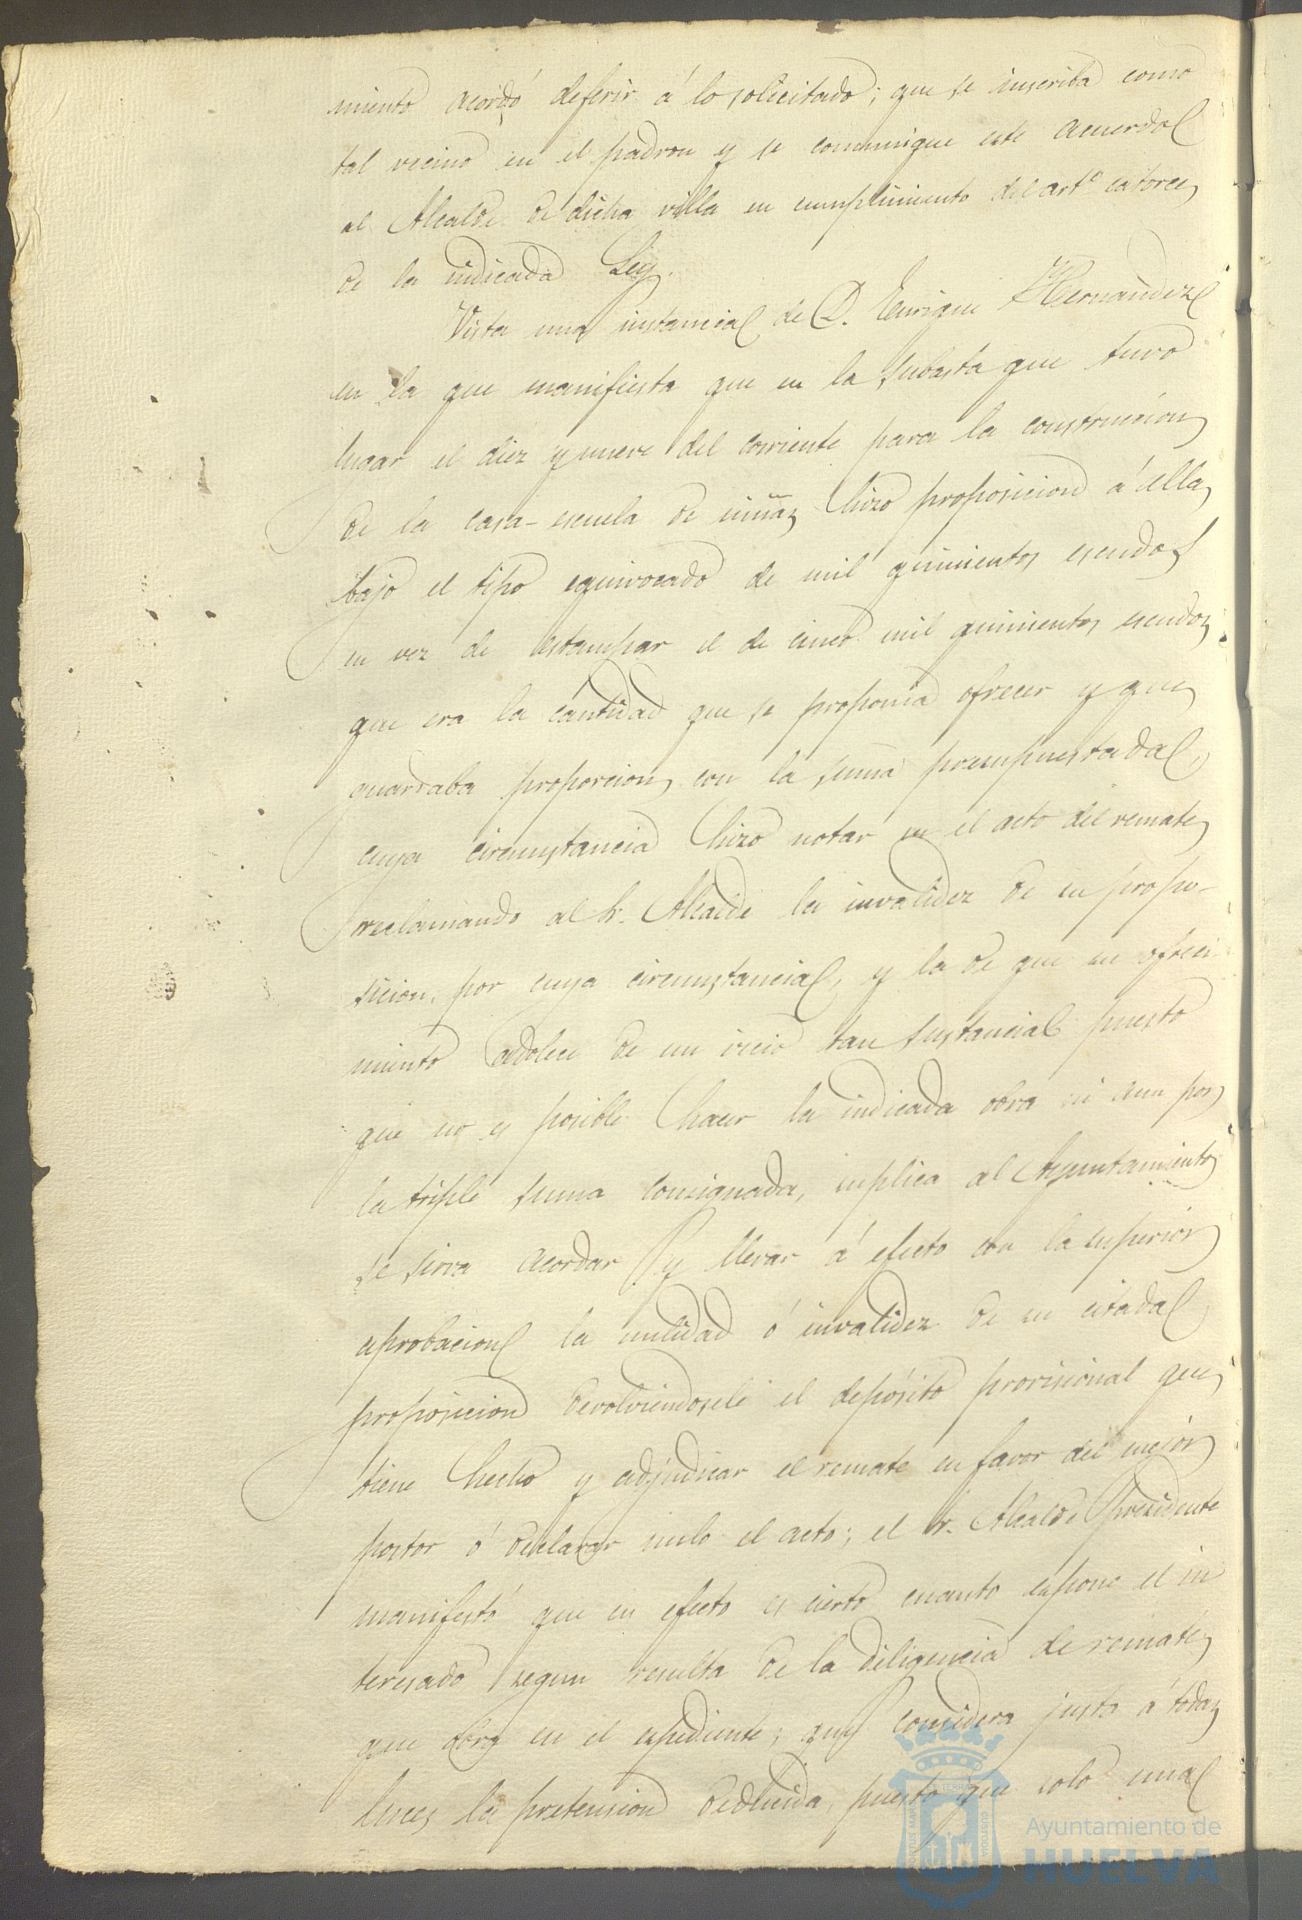 miento acordó deferir á lo solicitado; que se inscriba como
tal vecino en el padron y se comunique este acuerdo
al Alcalde de dicha villa en cumplimiento del artº catorce
de la indicada Ley.
Vista una instancia de D. Enrique Hernandez
en la que manifiesta que en la subasta que tuvo
lugar el diez y nueve del corriente para la construcion
de la casa-escuela de niñas hizo proposicion á ella
bajo el tipo equivocado de mil quinientos escudos
en vez de estampar el de cinco mil quinientos escudos
que era la cantidad que se proponia ofrecer y que
guardaba proporcion con la suma presupuestada,
cuya circunstancia hizo notar en el acto del remate
reclamando al Sr. Alcalde la invalidez de su propo-
sicion, por cuya circunstancia, y la de que su ofreci
miento adolece de un vicio tan sustancial puesto
que no es posible hacer la indicada obra ni aun por
la triple suma consignada, suplica al Ayuntamiento
se sirva acordar y llevar á efecto con la superior
aprobacion la nulidad ó invalidez de su citada
proposicion devolviendosele el depósito provisional que
tiene hecho y adjudicar el remate en favor del mejor
postor ó declarar nulo el acto; el Sr. Alcalde presidente
manifestó que en efecto es cierto cuanto espone el in
teresado segun resulta de la diligencia de remate
que obra en el espediente; que considera justa á todas
luces la pretension deducida, puesto que solo una
Ayuntamiento de
HUELVA